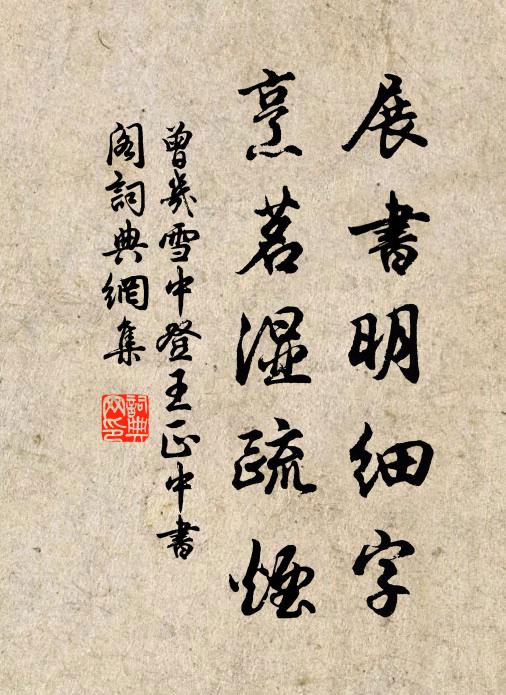 展書明細字
烹茗湿疏煙
曾幾雪中登王正中書
閣詞典網集
詞典網印